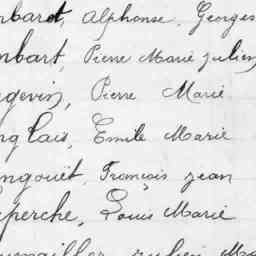 nbard, Alphonse, Georges
mbart, Pierre Marie Julien
gevin, Pierre Marie
nglais, Emile Marie
ngouët, François Jean
eperche, Louis Marie
Julien Ma